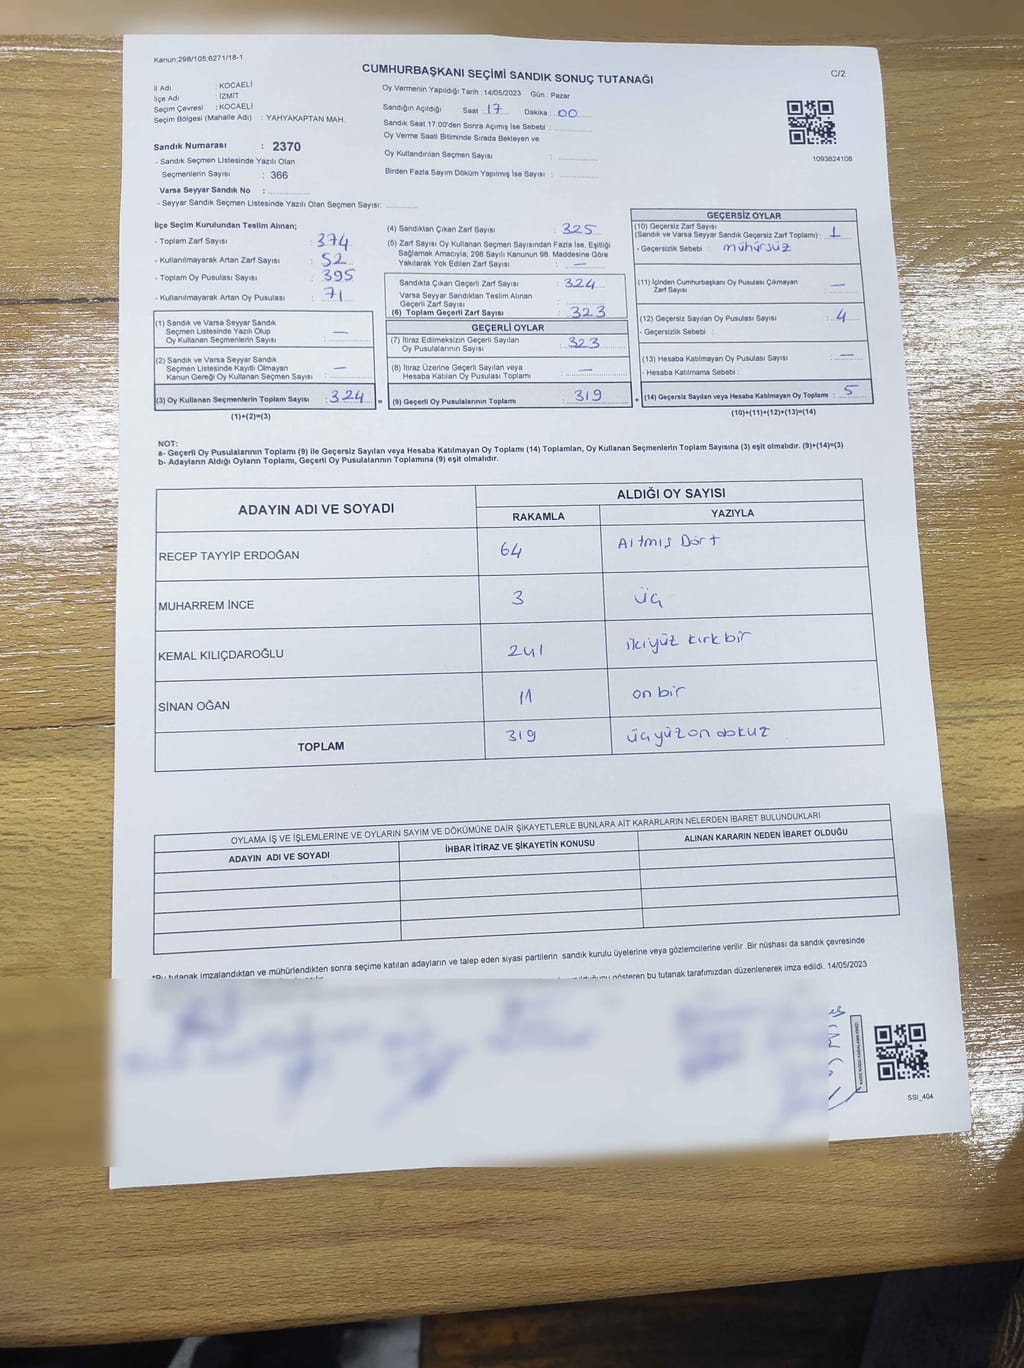 Kanun:298/105;6271/18-1
CUMHURBAŞKANI SEÇİMİ SANDIK SONUÇ TUTANAĞI
C/2
İl Adı : KOCAELİ
İlçe Adı : İZMİT
Seçim Çevresi : KOCAELİ
Seçim Bölgesi (Mahalle Adı) : YAHYAKAPTAN MAH.
Sandık Numarası : 2370
- Sandık Seçmen Listesinde Yazılı Olan
Seçmenlerin Sayısı : 366
Varsa Seyyar Sandık No :
- Seyyar Sandık Seçmen Listesinde Yazılı Olan Seçmen Sayısı:
Oy Vermenin Yapıldığı Tarih :14/05/2023 Gün : Pazar
Sandığın Açıldığı Saat 17 Dakika : 00
Sandık Saat 17:00'den Sonra Açımış İse Sebebi :
Oy Verme Saati Bitiminde Sırada Bekleyen ve
Oy Kullandırılan Seçmen Sayısı :
Birden Fazla Sayım Döküm Yapılmış İse Sayısı :
1093824108
İlçe Seçim Kurulundan Teslim Alınan;
- Toplam Zarf Sayısı : 374
- Kullanılmayarak Artan Zarf Sayısı : 52
- Toplam Oy Pusulası Sayısı : 395
- Kullanılmayarak Artan Oy Pusulası : 71
(1) Sandık ve Varsa Seyyar Sandık
Seçmen Listesinde Yazılı Olup
Oy Kullanan Seçmenlerin Sayısı : —
(2) Sandık ve Varsa Seyyar Sandık
Seçmen Listesinde Kayıtlı Olmayan
Kanun Gereği Oy Kullanan Seçmen Sayısı : —
(3) Oy Kullanan Seçmenlerin Toplam Sayısı : 324 =
(1)+(2)=(3)
(4) Sandıktan Çıkan Zarf Sayısı : 325
(5) Zarf Sayısı Oy Kullanan Seçmen Sayısından Fazla İse, Eşitliği
Sağlamak Amacıyla; 298 Sayılı Kanunun 98. Maddesine Göre
Yakılarak Yok Edilen Zarf Sayısı : —
Sandıkta Çıkan Geçerli Zarf Sayısı : 324
Varsa Seyyar Sandıktan Teslim Alınan
Geçerli Zarf Sayısı :
(6) Toplam Geçerli Zarf Sayısı : 323
GEÇERLİ OYLAR
(7) İtiraz Edilmeksizin Geçerli Sayılan
Oy Pusulalarının Sayısı : 323
(8) İtiraz Üzerine Geçerli Sayılan veya
Hesaba Katılan Oy Pusulası Toplamı : —
(9) Geçerli Oy Pusulalarının Toplamı : 319 +
GEÇERSİZ OYLAR
(10) Geçersiz Zarf Sayısı
(Sandık ve Varsa Seyyar Sandık Geçersiz Zarf Toplamı) : 1
- Geçersizlik Sebebi : mühürsüz
(11) İçinden Cumhurbaşkanı Oy Pusulası Çıkmayan
Zarf Sayısı : —
(12) Geçersiz Sayılan Oy Pusulası Sayısı : 4
- Geçersizlik Sebebi :
(13) Hesaba Katılmayan Oy Pusulası Sayısı : —
- Hesaba Katılmama Sebebi :
(14) Geçersiz Sayılan veya Hesaba Katılmayan Oy Toplamı : 5
(10)+(11)+(12)+(13)=(14)
NOT:
a- Geçerli Oy Pusulalarının Toplamı (9) ile Geçersiz Sayılan veya Hesaba Katılmayan Oy Toplamı (14) Toplamları, Oy Kullanan Seçmenlerin Toplam Sayısına (3) eşit olmalıdır. (9)+(14)=(3)
b- Adayların Aldığı Oyların Toplamı, Geçerli Oy Pusulalarının Toplamına (9) eşit olmalıdır.
ADAYIN ADI VE SOYADI ALDIĞI OY SAYISI
RAKAMLA YAZIYLA
RECEP TAYYİP ERDOĞAN 64 Altmış Dört
MUHARREM İNCE 3 üç
KEMAL KILIÇDAROĞLU 241 ikiyüz kırk bir
SİNAN OĞAN 11 on bir
TOPLAM 319 üçyüz on dokuz
OYLAMA İŞ VE İŞLEMLERİNE VE OYLARIN SAYIM VE DÖKÜMÜNE DAİR ŞİKAYETLERLE BUNLARA AİT KARARLARIN NELERDEN İBARET BULUNDUKLARI
ADAYIN ADI VE SOYADI İHBAR İTİRAZ VE ŞİKAYETİN KONUSU ALINAN KARARIN NEDEN İBARET OLDUĞU
*Bu tutanak imzalandıktan ve mühürlendikten sonra seçime katılan adayların ve talep eden siyasi partilerin sandık kurulu üyelerine veya gözlemcilerine verilir .Bir nüshası da sandık çevresinde
gösteren bu tutanak tarafımızdan düzenlenerek imza edildi. 14/05/2023
SSI_404